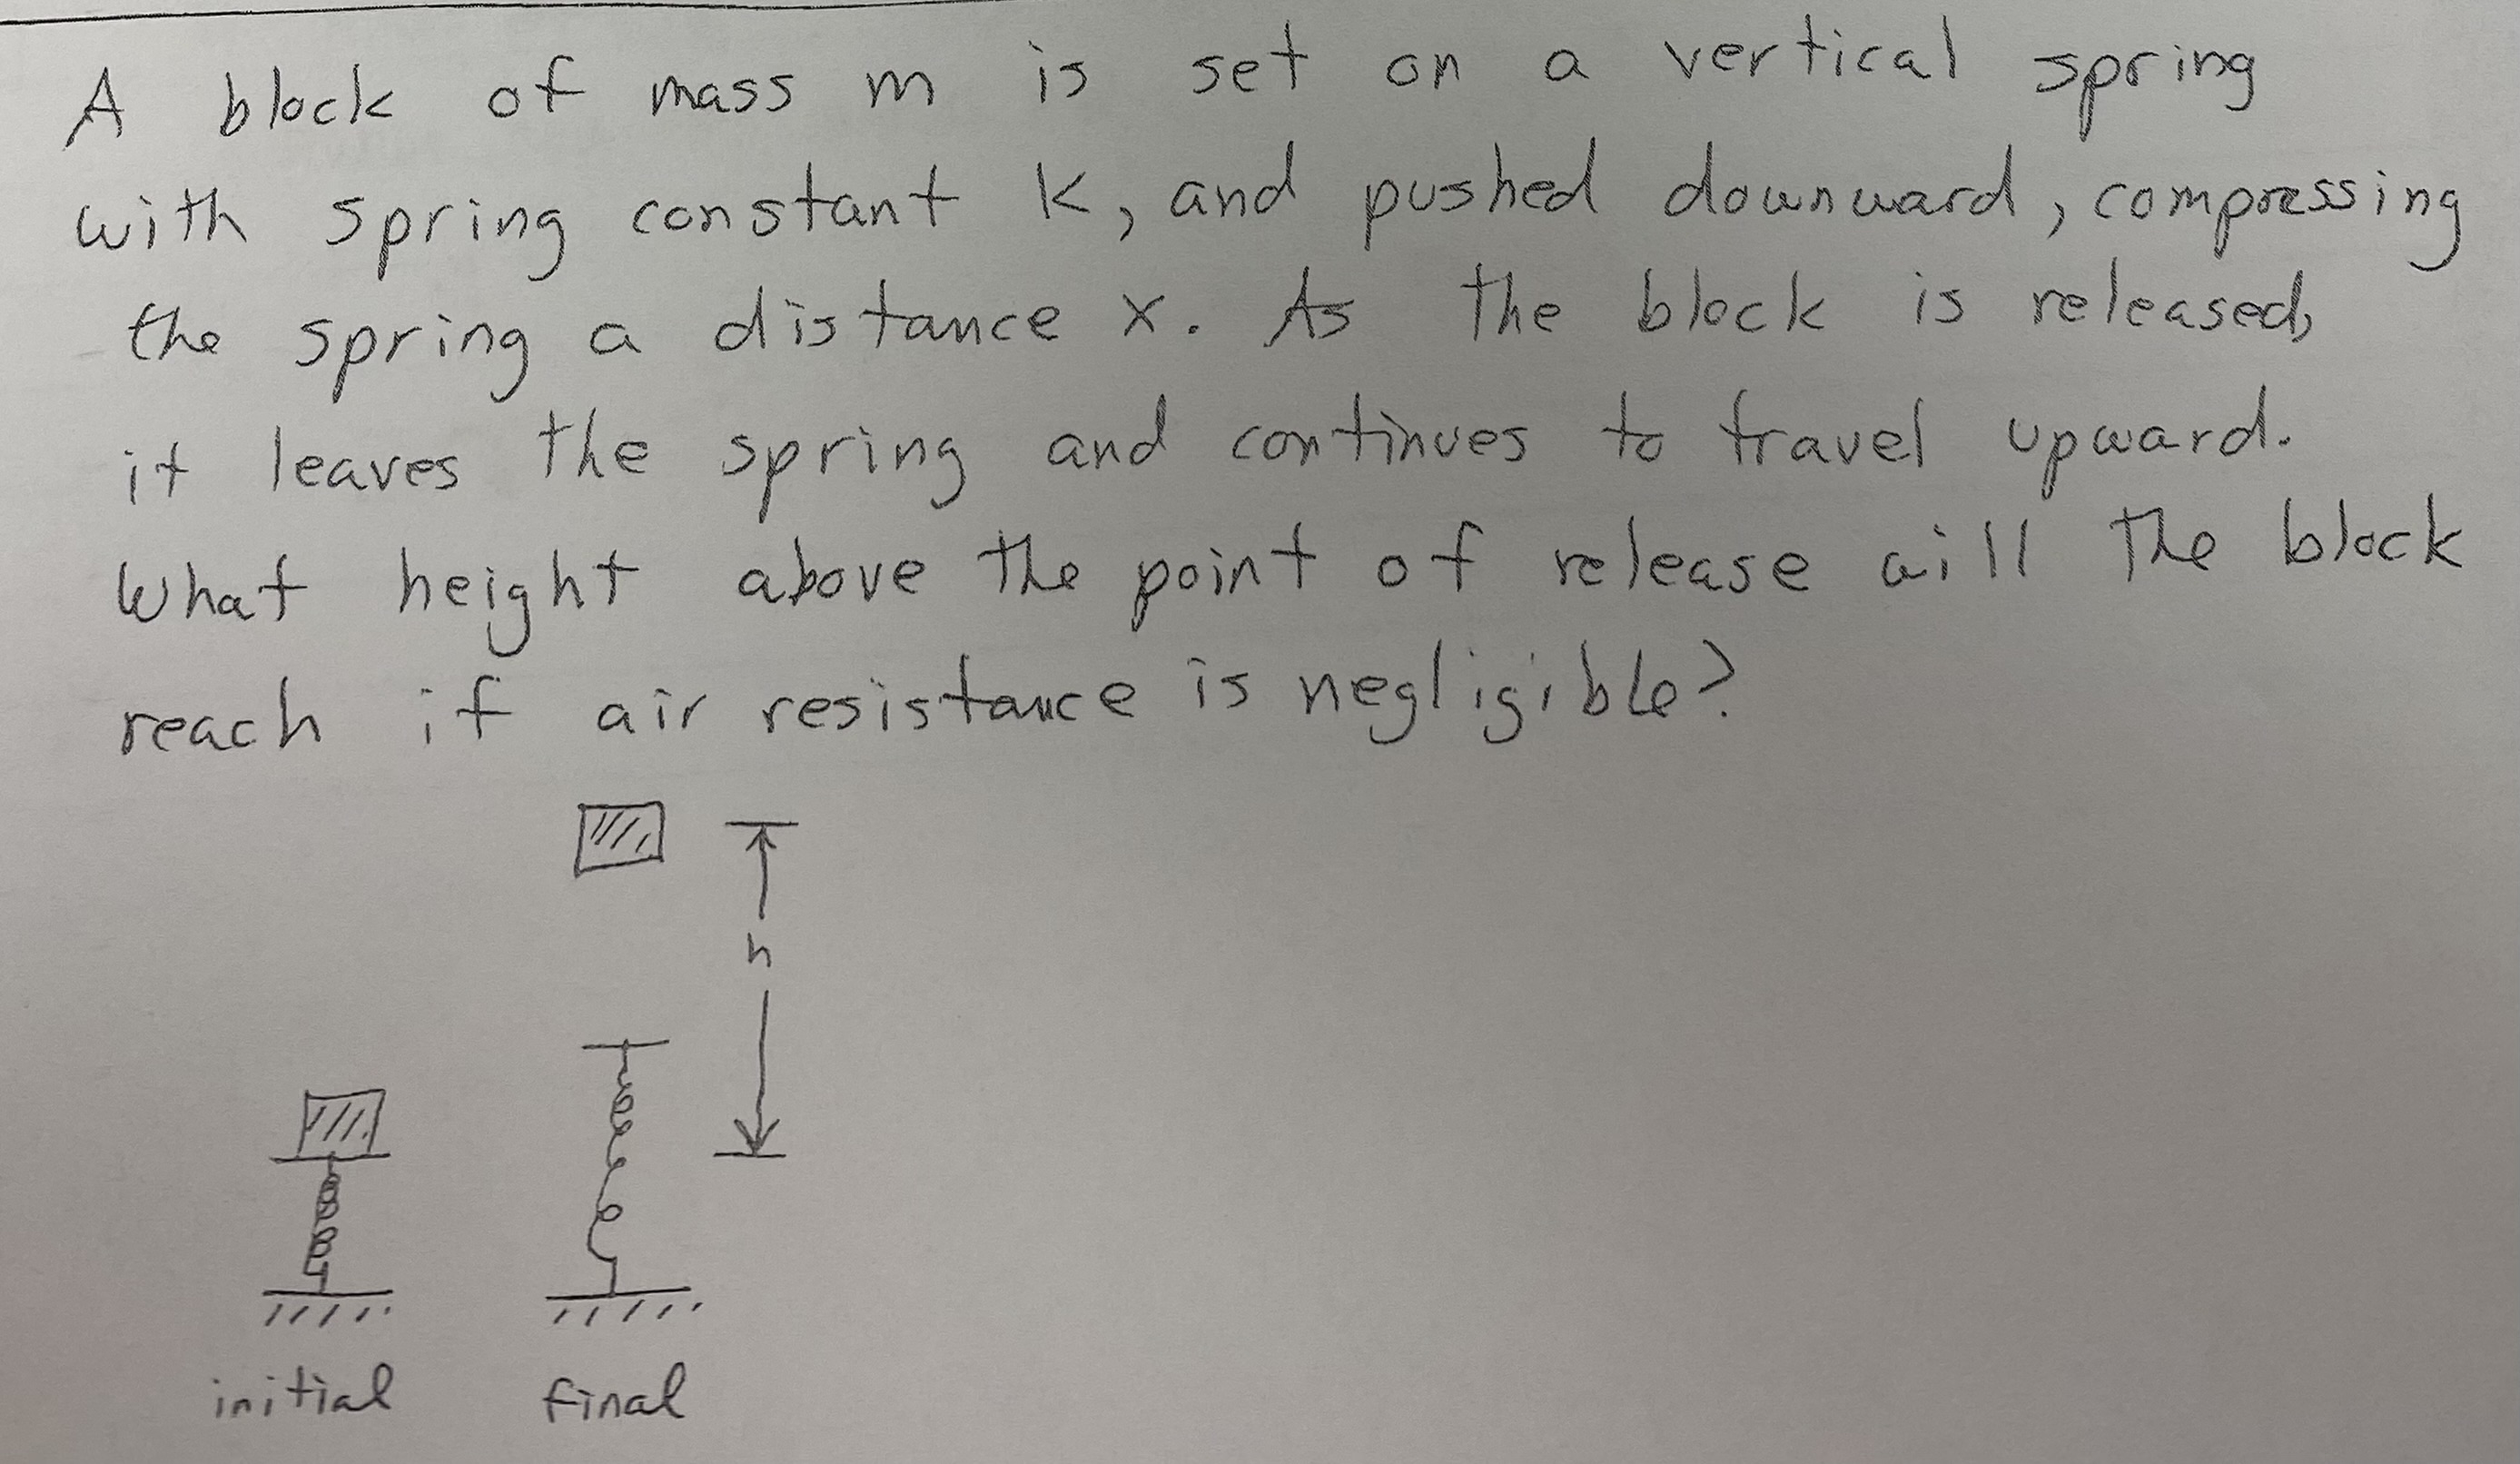 A block of mass m is set on a vertical spring
with spring constant k, and pushed downward, compressing
the spring a distance x. As the block is released,
it leaves the spring and continues to travel upward.
What height above the point of release will the block
reach if air resistance is negligible?
h
initial final